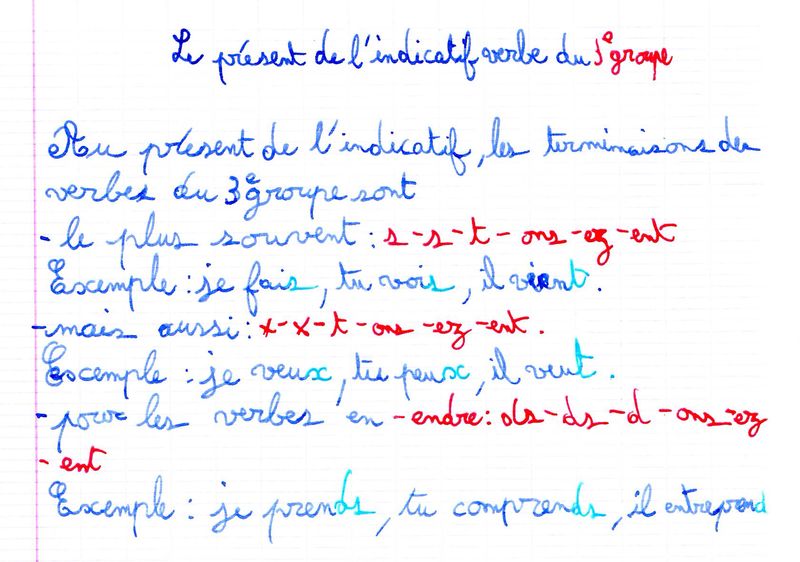 Le présent de l'indicatif verbe du 3e groupe
Au présent de l'indicatif, les terminaisons des
verbes du 3e groupe sont
- le plus souvent : s - s - t - ons - ez - ent
Exemple : je fais, tu vois, il vient.
- mais aussi : x - x - t - ons - ez - ent.
Exemple : je veux, tu peux, il veut.
- pour les verbes en - endre : ds - ds - d - ons - ez
- ent
Exemple : je prends, tu comprends, il entreprend